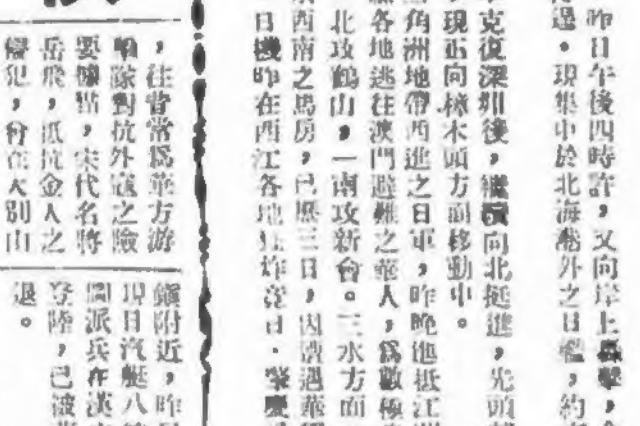 昨日午後四時許，又向岸上轟擊，
。現集中於北海港外之日艦，約
克復深圳後，繼續向北挺進，先頭
現正向樟木頭方面移動中。
角洲地帶西進之日軍，昨晚他抵江
各地逃往澳門避難之華人，爲數極
北攻鶴山，一南攻新會。三水方面
西南之馬房，已歷三日，因遭遇華
日機昨在西江各地狂炸竟日。肇慶
，往昔常爲華方游
擊隊對抗外寇之險
要據點，宋代名將
岳飛，抵抗金人之
，曾在大別山
鎮附近，昨
現日汽艇八
派兵在漢
登陸，已被
退。